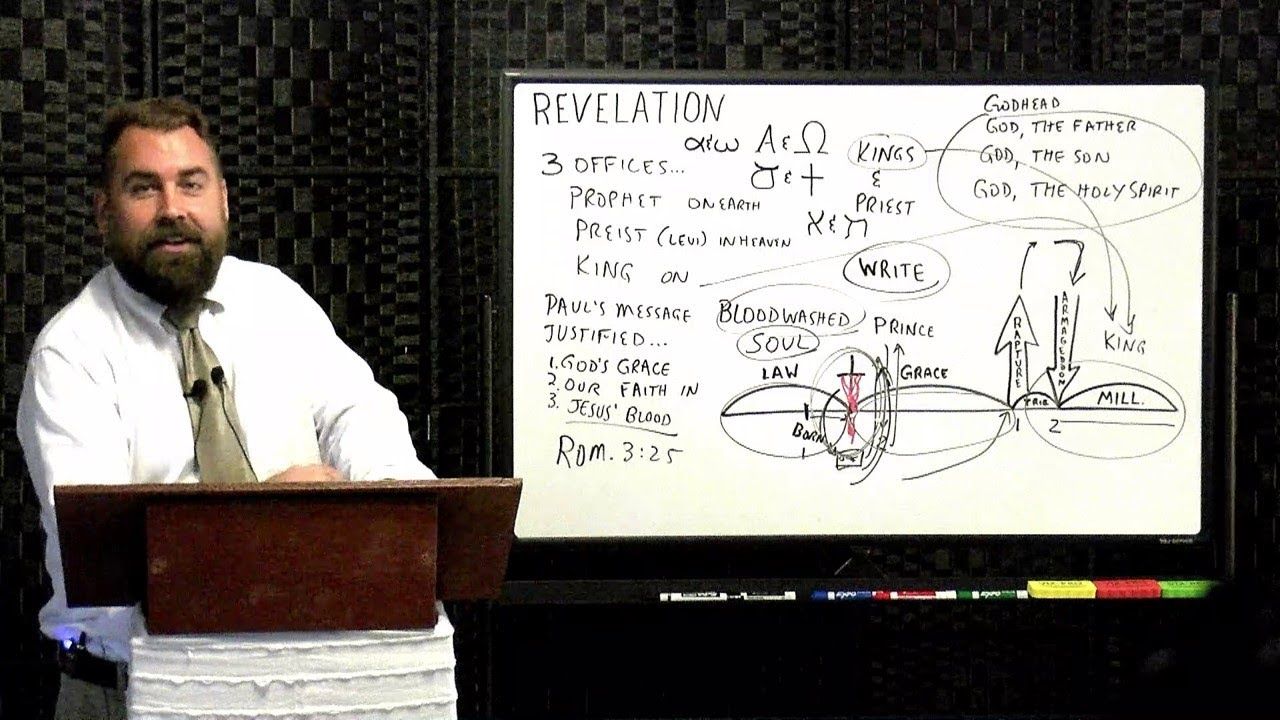 REVELATION
α&ω A&Ω
ꞇ&+
א&ת
3 OFFICES...
PROPHET ON EARTH
PREIST (LEVI) IN HEAVEN
KING ON
KINGS
&
PRIEST
GODHEAD
GOD, THE FATHER
GOD, THE SON
GOD, THE HOLY SPIRIT
WRITE
PAUL'S MESSAGE
JUSTIFIED...
1. GOD'S GRACE
2. OUR FAITH IN
3. JESUS' BLOOD
ROM. 3:25
BLOODWASHED
SOUL
PRINCE
LAW
GRACE
BORN
RAPTURE
ARMAGEDDON
KING
TRIB
MILL.
1 2